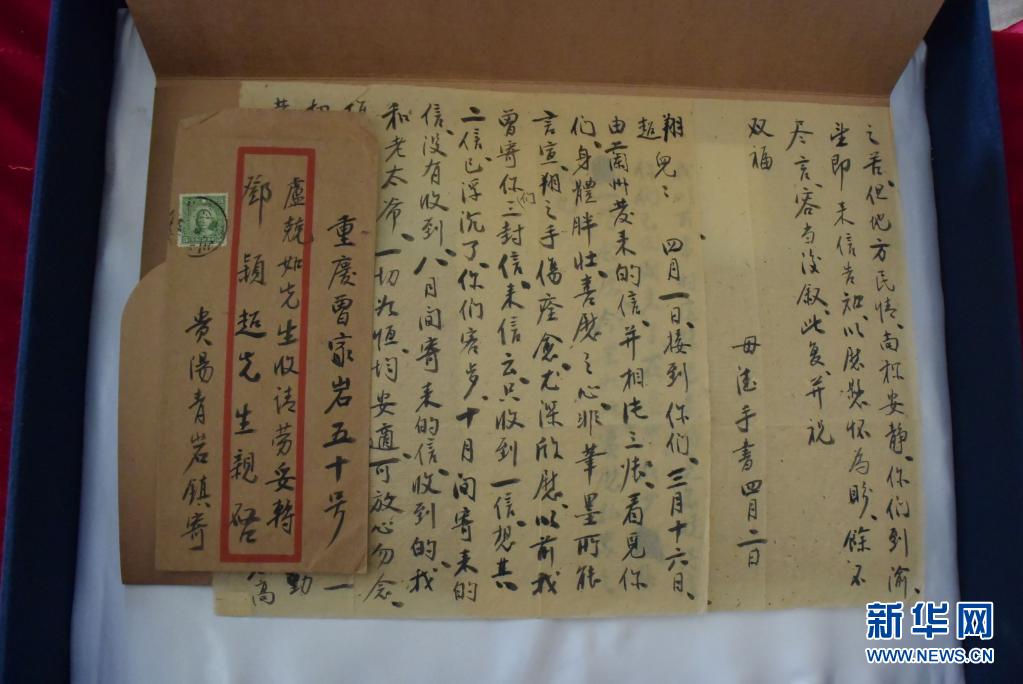 之苦、但地方民情、尚称安静、你们到渝、
望即来信告知、以慰愁怀為盼、餘不
尽言、容当後叙、此复、并祝
双福
母德手書四月二日
翔超兒：四月一日、接到你们、三月十六日、
由蘭州發来的信、并相片三張、看見你
们、身體胖壮、喜慰之心、非筆墨所能
言宣、翔之手傷痊愈、尤深欣慰、以前我
曾寄你们三封信、来信云、只收到一信、想其
二信、已浮沉了、你们客歲、十月间寄来的
信、没有收到、八月间寄来的信、收到的、我
和老太爷、一切如恒、均安適、可放心勿念、
重慶曾家岩五十号
盧兢如先生收请劳妥轉
鄧穎超先生親啓
貴陽青岩鎮寄
新华网
WWW.NEWS.CN